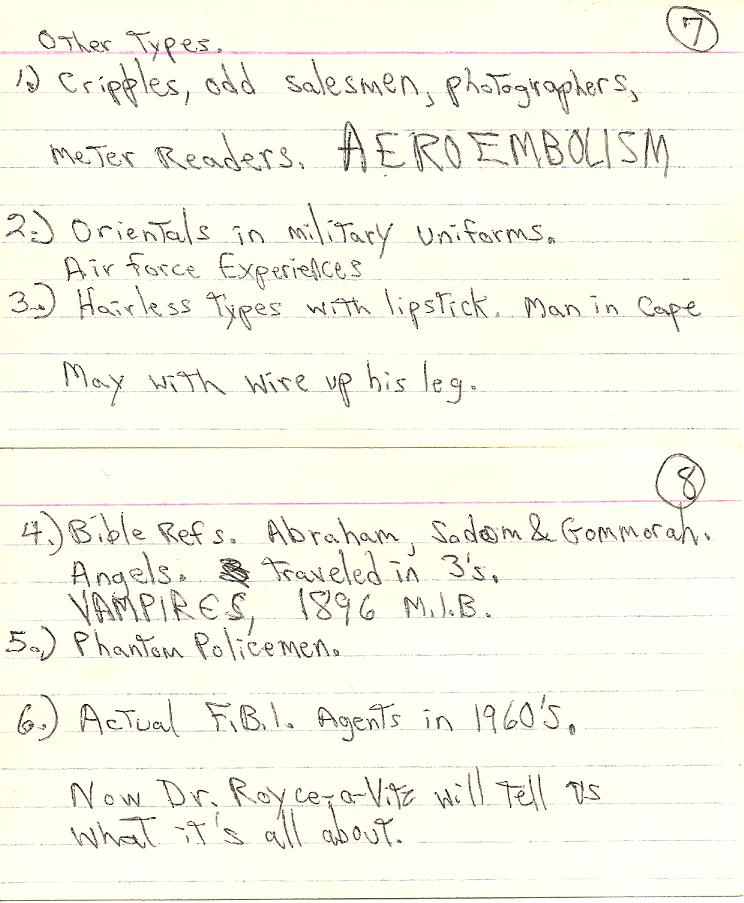 7
Other Types.
1.) Cripples, odd salesmen, photographers,
meter Readers. AEROEMBOLISM
2.) Orientals in military uniforms.
Air force Experiences
3.) Hairless types with lipstick. Man in Cape
May with wire up his leg.
8
4.) Bible Refs. Abraham, Sodom & Gommorah.
Angels. traveled in 3's.
VAMPIRES, 1896 M.I.B.
5.) Phantom Policemen.
6.) Actual F.B.I. Agents in 1960's.
Now Dr. Royce-a-Vitz will tell us
what it's all about.